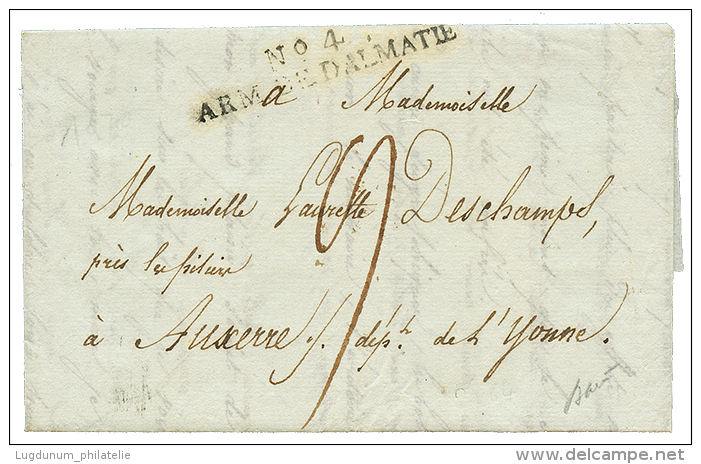 No 4
ARM. DE DALMATIE
a Mademoiselle
Mademoiselle Laurette Deschamps,
près les piliers
à Auxerre /. dép.t de L'Yonne.
9
Lugdunum_philatelie
delcampe.net